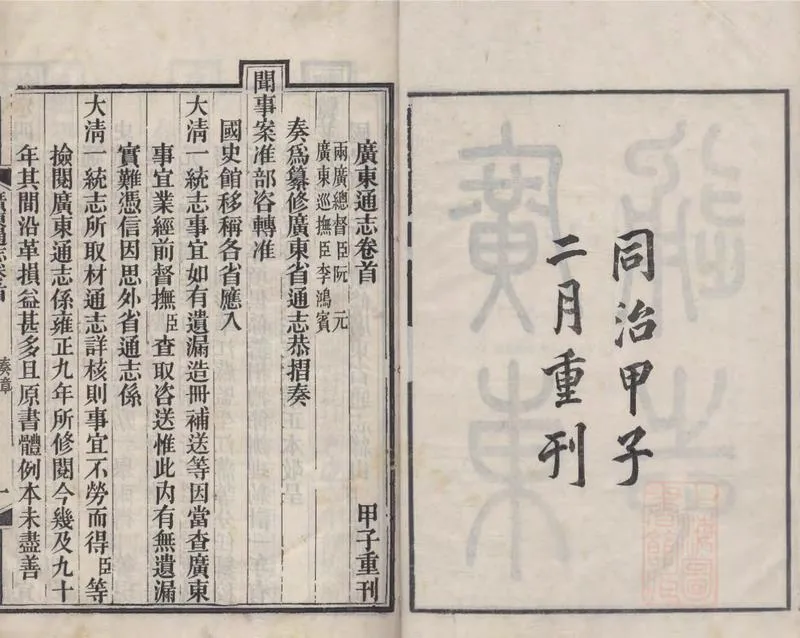 同治甲子
二月重刊
廣東通志卷首
甲子重刊
兩廣總督臣阮元
廣東巡撫臣李鴻賓
奏爲纂修廣東省通志恭摺奏
聞事案准部咨轉准
國史館移稱各省應入
大清一統志事宜如有遺漏造冊補送等因當查廣東
事宜業經前督撫臣查取咨送惟此内有無遺漏
實難憑信因思外省通志係
大清一統志所取材通志詳核則事宜不勞而得臣等
撿閱廣東通志係雍正九年所修閱今幾及九十
年其間沿革損益甚多且原書體例本未盡善
奏章
一